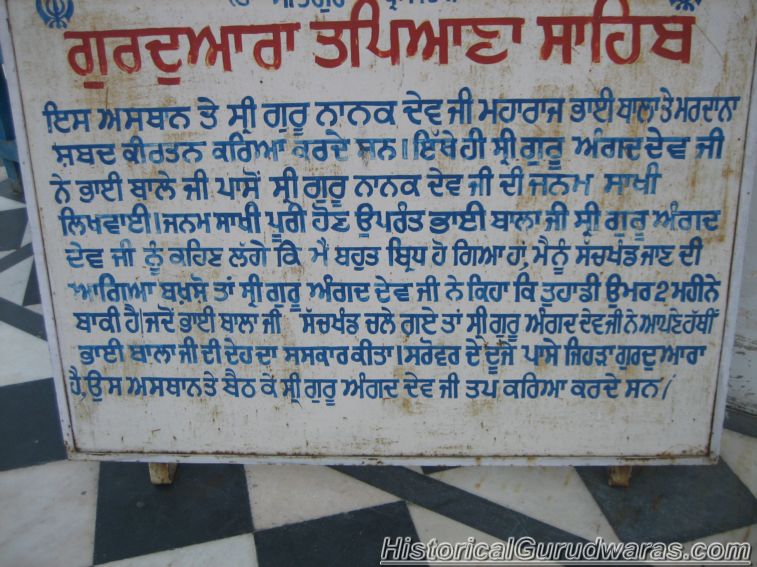 ਗੁਰਦੁਆਰਾ ਤਪਿਆਣਾ ਸਾਹਿਬ
ਇਸ ਅਸਥਾਨ ਤੇ ਸ੍ਰੀ ਗੁਰੂ ਨਾਨਕ ਦੇਵ ਜੀ ਮਹਾਰਾਜ ਭਾਈ ਬਾਲਾ ਤੇ ਮਰਦਾਨਾ
ਸ਼ਬਦ ਕੀਰਤਨ ਕਰਿਆ ਕਰਦੇ ਸਨ। ਇੱਥੇ ਹੀ ਸ੍ਰੀ ਗੁਰੂ ਅੰਗਦ ਦੇਵ ਜੀ
ਨੇ ਭਾਈ ਬਾਲੇ ਜੀ ਪਾਸੋਂ ਸ੍ਰੀ ਗੁਰੂ ਨਾਨਕ ਦੇਵ ਜੀ ਦੀ ਜਨਮ ਸਾਖੀ
ਲਿਖਵਾਈ। ਜਨਮ ਸਾਖੀ ਪੂਰੀ ਹੋਣ ਉਪਰੰਤ ਭਾਈ ਬਾਲਾ ਜੀ ਸ੍ਰੀ ਗੁਰੂ ਅੰਗਦ
ਦੇਵ ਜੀ ਨੂੰ ਕਹਿਣ ਲੱਗੇ ਕਿ ਮੈਂ ਬਹੁਤ ਬ੍ਰਿਧ ਹੋ ਗਿਆ ਹਾਂ, ਮੈਨੂੰ ਸੱਚਖੰਡ ਜਾਣ ਦੀ
ਆਗਿਆ ਬਖਸ਼ੋ ਤਾਂ ਸ੍ਰੀ ਗੁਰੂ ਅੰਗਦ ਦੇਵ ਜੀ ਨੇ ਕਿਹਾ ਕਿ ਤੁਹਾਡੀ ਉਮਰ 2 ਮਹੀਨੇ
ਬਾਕੀ ਹੈ। ਜਦੋਂ ਭਾਈ ਬਾਲਾ ਜੀ ਸੱਚਖੰਡ ਚਲੇ ਗਏ ਤਾਂ ਸ੍ਰੀ ਗੁਰੂ ਅੰਗਦ ਦੇਵ ਜੀ ਨੇ ਆਪਣੇ ਹੱਥੀਂ
ਭਾਈ ਬਾਲਾ ਜੀ ਦੀ ਦੇਹ ਦਾ ਸਸਕਾਰ ਕੀਤਾ। ਸਰੋਵਰ ਦੇ ਦੂਜੇ ਪਾਸੇ ਜਿਹੜਾ ਗੁਰਦੁਆਰਾ
ਹੈ, ਉਸ ਅਸਥਾਨ ਤੇ ਬੈਠ ਕੇ ਸ੍ਰੀ ਗੁਰੂ ਅੰਗਦ ਦੇਵ ਜੀ ਤਪ ਕਰਿਆ ਕਰਦੇ ਸਨ।
HistoricalGurudwaras.com